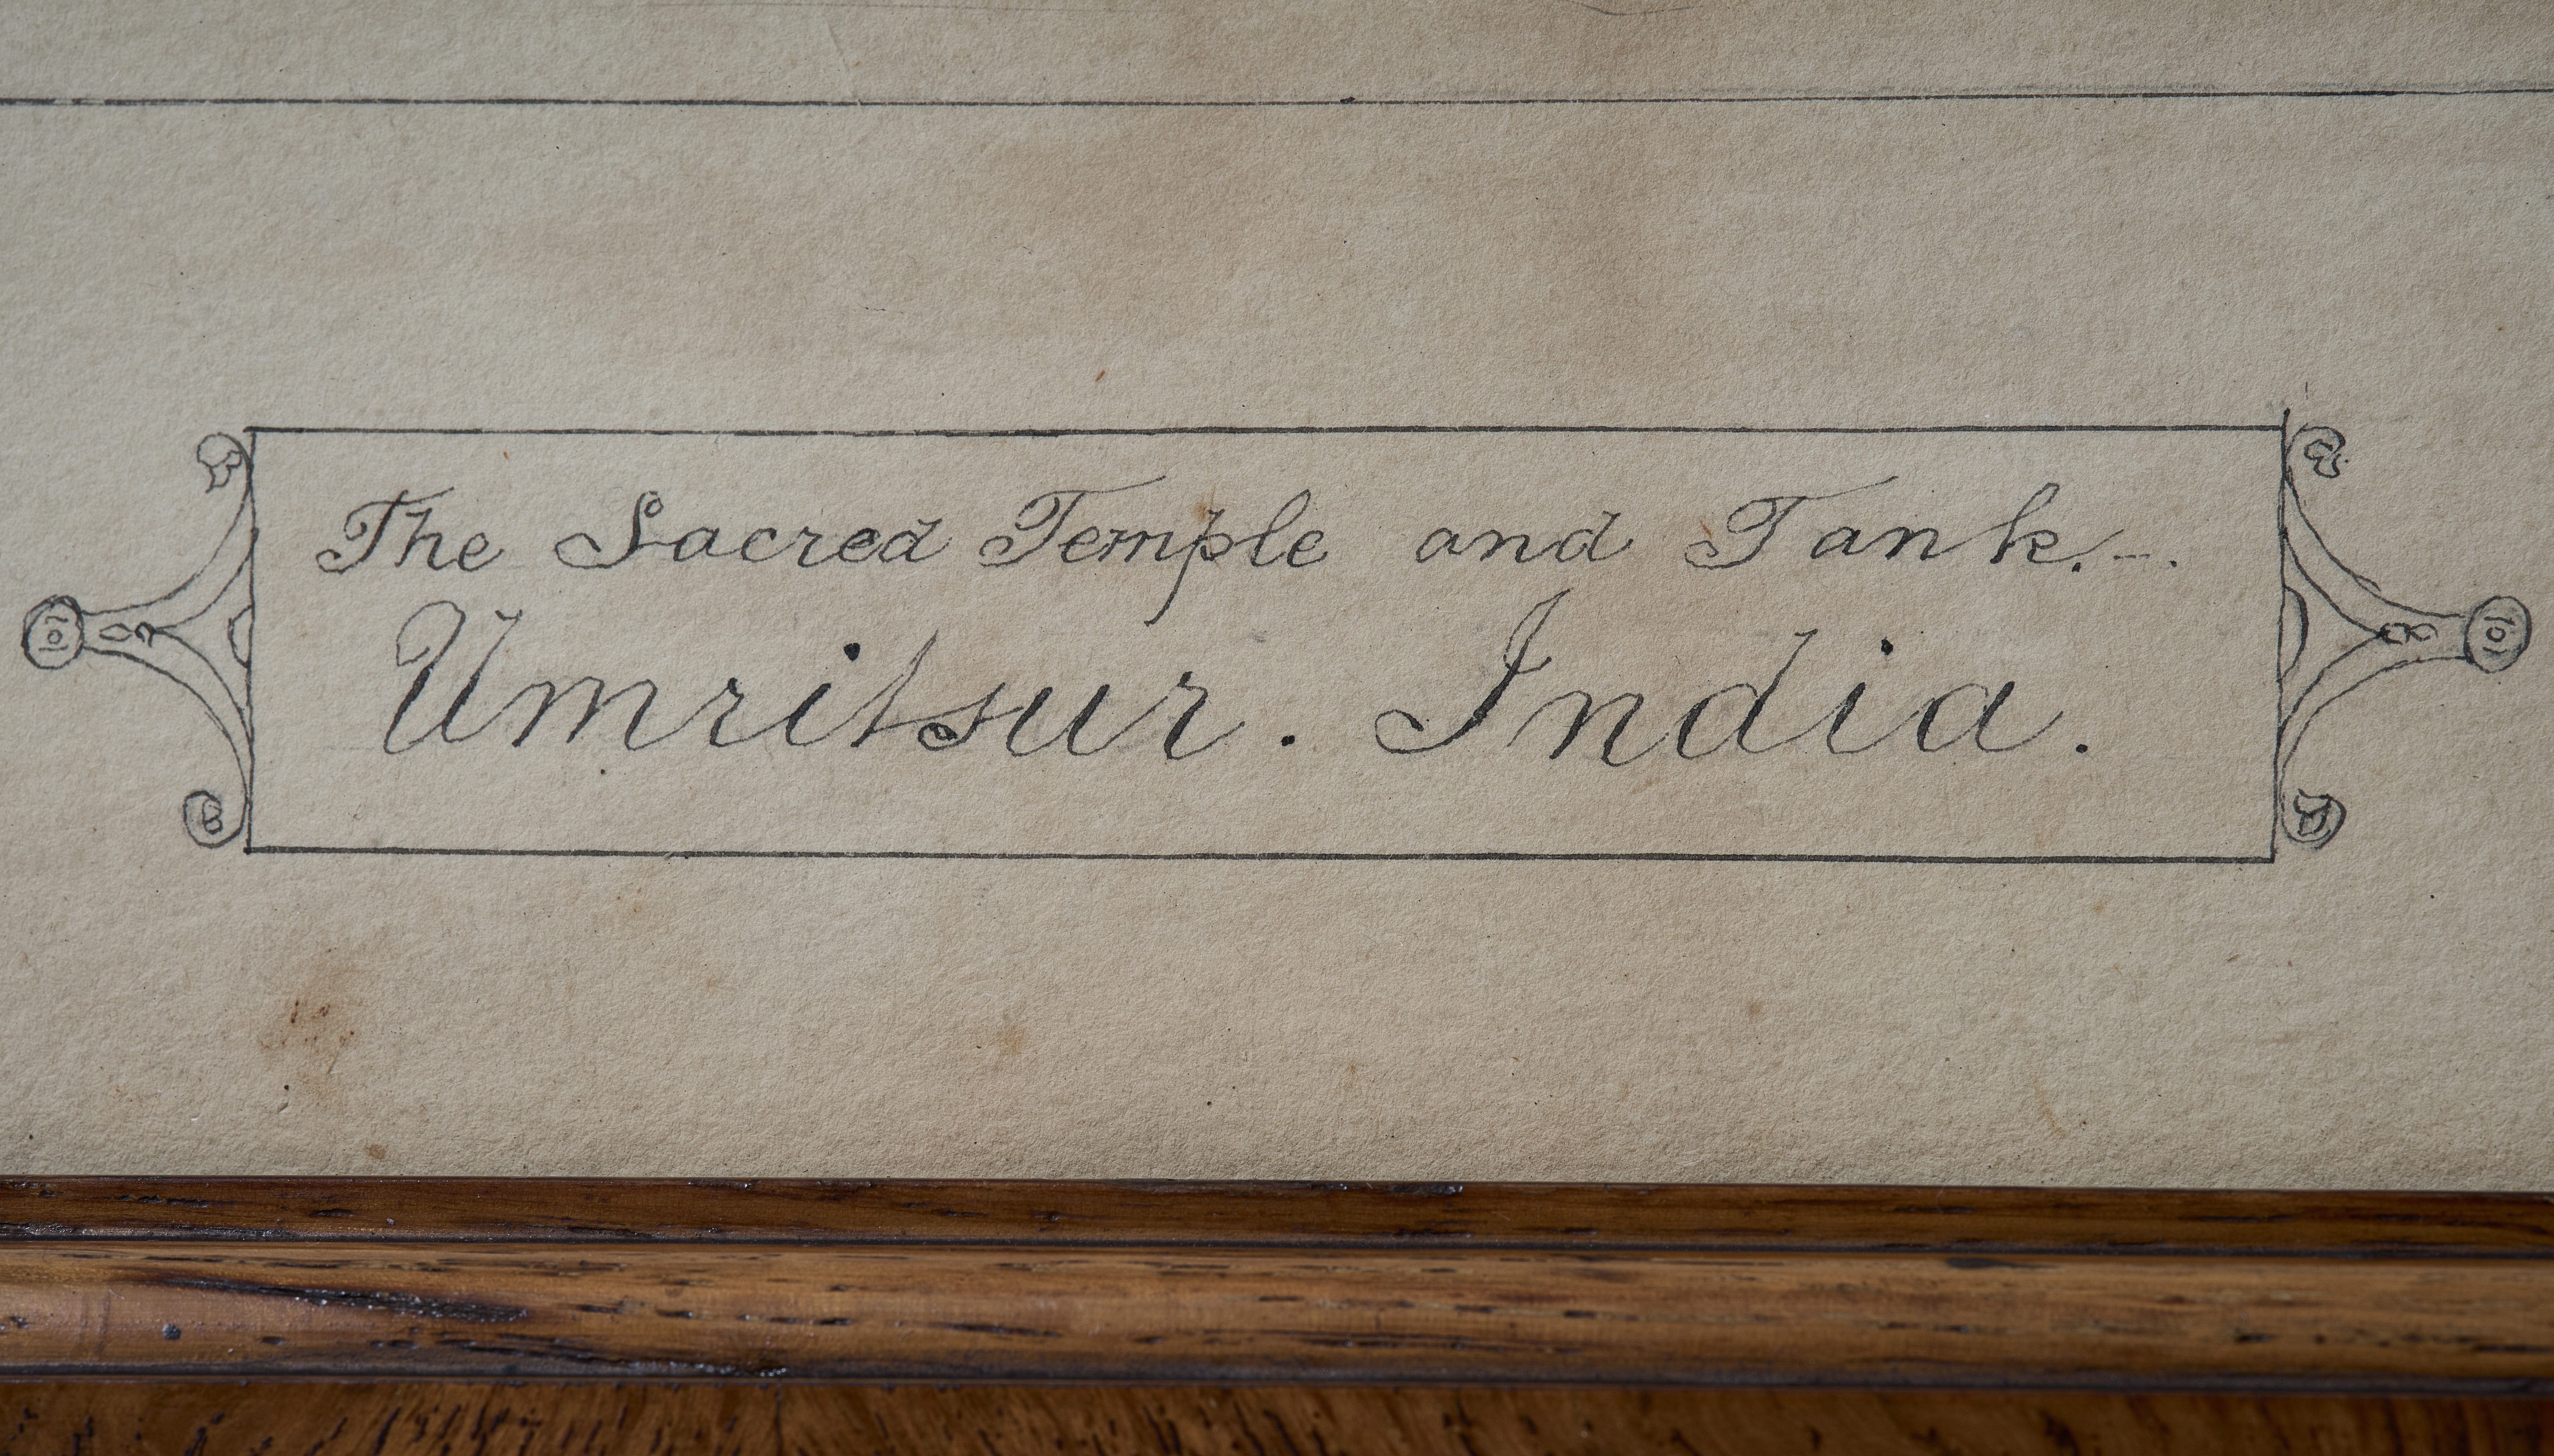 The Sacred Temple and Tank.-.
Umritsur. India.